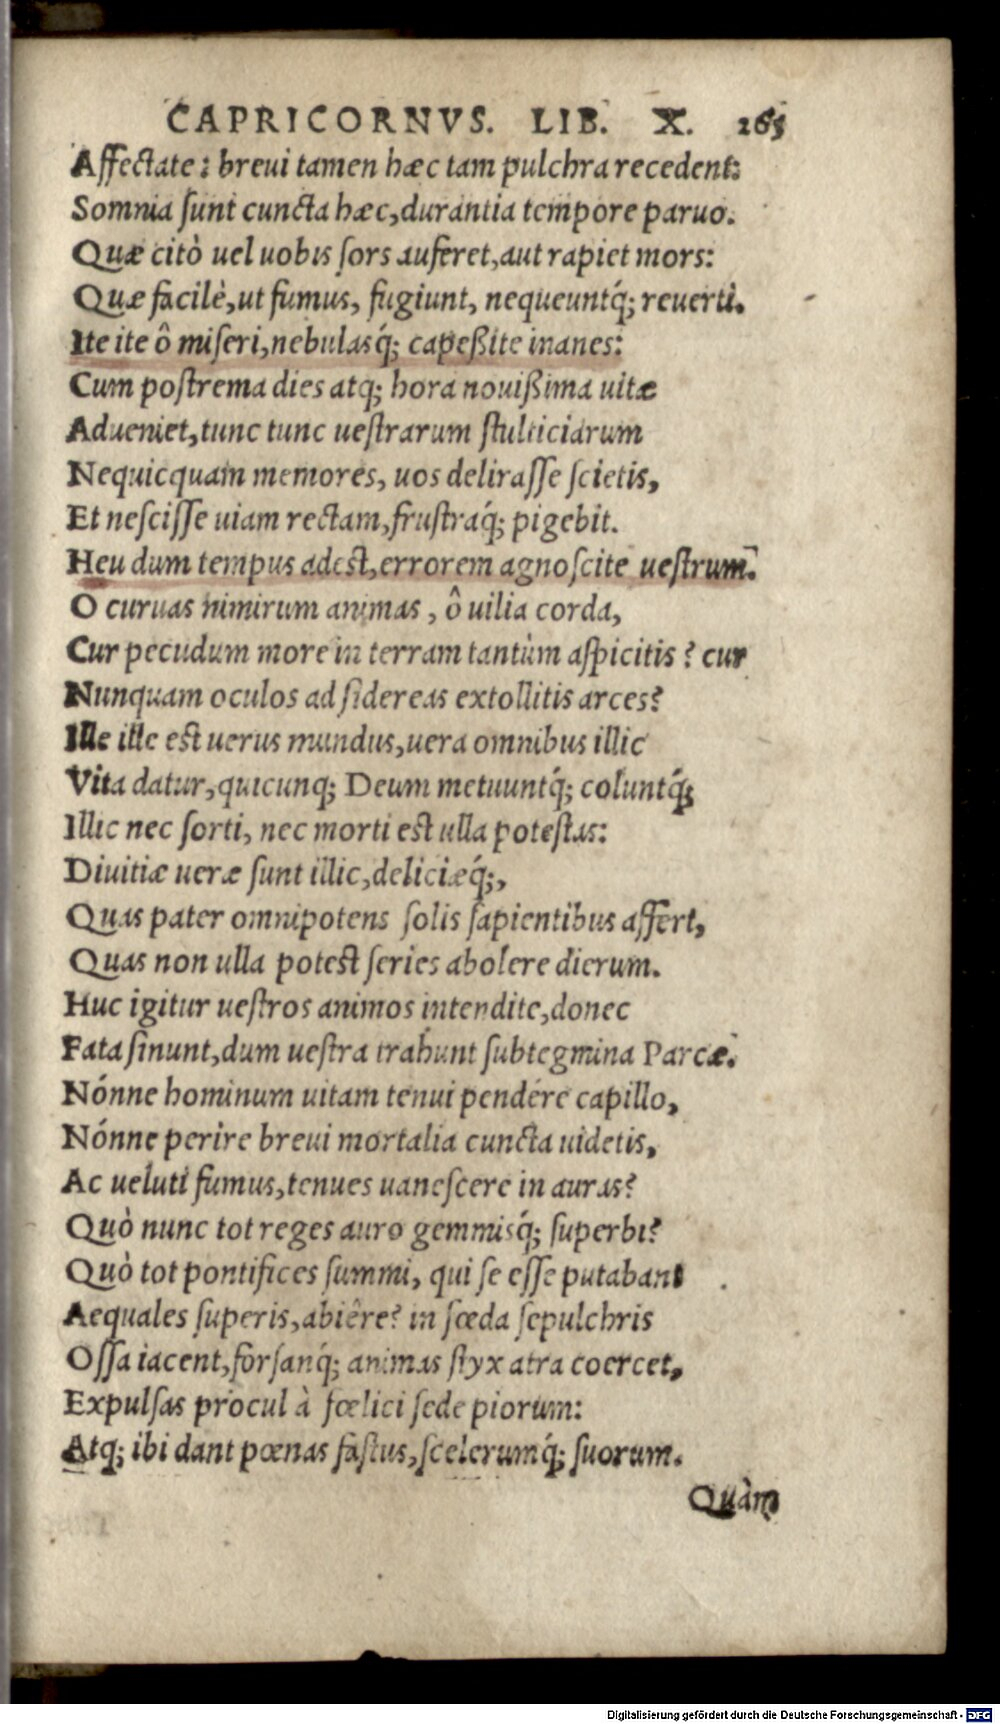 CAPRICORNVS. LIB. X. 265
Affectate: breui tamen hæc tam pulchra recedent:
Somnia ſunt cuncta hæc, durantia tempore paruo.
Quæ citò uel uobis ſors auferet, aut rapiet mors:
Quæ facilè, ut fumus, fugiunt, nequeuntq́; reuerti.
Ite ite ô miſeri, nebulasq́; capeßite inanes:
Cum poſtrema dies atq; hora nouißima uitæ
Adueniet, tunc tunc ueſtrarum ſtulticiarum
Nequicquam memores, uos deliraſſe ſcietis,
Et neſciſſe uiam rectam, fruſtraq́; pigebit.
Heu dum tempus adest, errorem agnoſcite ueſtrum.
O curuas nimirum animas, ô uilia corda,
Cur pecudum more in terram tantùm aſpicitis? cur
Nunquam oculos ad ſidereas extollitis arces?
Ille ille est uerus mundus, uera omnibus illic
Vita datur, quicunq; Deum metuuntq́; coluntq́;
Illic nec ſorti, nec morti est ulla poteſtas:
Diuitiæ ueræ ſunt illic, deliciæq́;,
Quas pater omnipotens ſolis ſapientibus affert,
Quas non ulla potest ſeries abolere dierum.
Huc igitur ueſtros animos intendite, donec
Fata ſinunt, dum ueſtra trahunt ſubtegmina Parcæ.
Nónne hominum uitam tenui pendére capillo,
Nónne perire breui mortalia cuncta uidetis,
Ac ueluti fumus, tenues uaneſcere in auras?
Quò nunc tot reges auro gemmisq́; ſuperbi?
Quò tot pontifices ſummi, qui ſe eſſe putabant
Aequales ſuperis, abiêre? in fœda ſepulchris
Oſſa iacent, forſanq́; animas ſtyx atra coercet,
Expulſas procul à fœlici ſede piorum:
Atq; ibi dant pœnas faſtus, ſcelerumq́; ſuorum.
Quàm
Digitalisierung gefördert durch die Deutsche Forschungsgemeinschaft - DFG